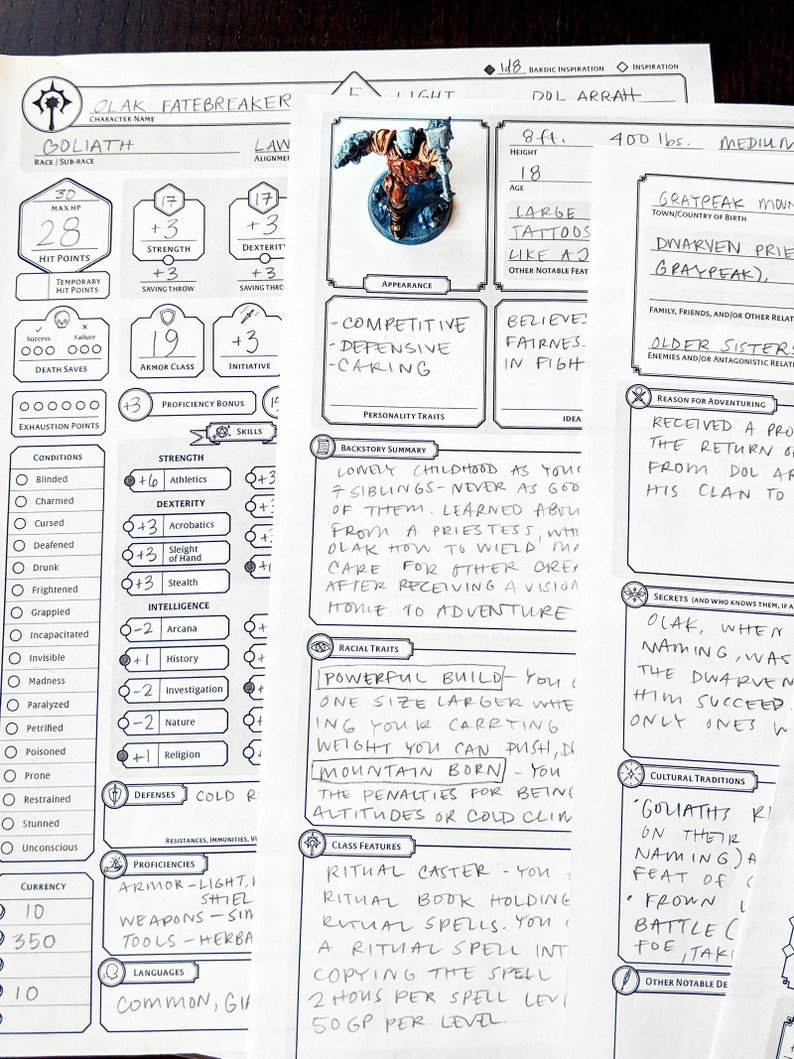 1d8 BARDIC INSPIRATION INSPIRATION
OLAK FATEBREAKER LIGHT DOL ARRAH
CHARACTER NAME
GOLIATH LAW
RACE / SUB-RACE ALIGNM
30
MAX HP
28
HIT POINTS
TEMPORARY
HIT POINTS
17
+3
STRENGTH
+3
SAVING THROW
17
+3
DEXTERIT
+3
SAVING THR
Success Failure
DEATH SAVES
19
ARMOR CLASS
+3
INITIATIVE
EXHAUSTION POINTS
+3 PROFICIENCY BONUS
SKILLS
CONDITIONS
Blinded
Charmed
Cursed
Deafened
Drunk
Frightened
Grappled
Incapacitated
Invisible
Madness
Paralyzed
Petrified
Poisoned
Prone
Restrained
Stunned
Unconscious
STRENGTH
+6 Athletics
DEXTERITY
+3 Acrobatics
+3 Sleight
of Hand
+3 Stealth
INTELLIGENCE
-2 Arcana
+1 History
-2 Investigation
-2 Nature
+1 Religion
DEFENSES COLD R
RESISTANCES, IMMUNITIES, V
PROFICIENCIES
ARMOR - LIGHT,
SHIEL
WEAPONS - SIM
TOOLS - HERBA
LANGUAGES
COMMON, GIA
CURRENCY
10
350
10
APPEARANCE
8 ft. 400 lbs. MEDIUM
HEIGHT
18
AGE
LARGE
TATTOOS
LIKE A
OTHER NOTABLE FEAT
- COMPETITIVE
- DEFENSIVE
- CARING
PERSONALITY TRAITS
BELIEVES
FAIRNES
IN FIGH
IDEA
BACKSTORY SUMMARY
LONELY CHILDHOOD AS YOU
7 SIBLINGS - NEVER AS GOO
OF THEM. LEARNED ABOU
FROM A PRIESTESS, WH
OLAK HOW TO WIELD MA
CARE FOR OTHER CRE
AFTER RECEIVING A VISION
HOME TO ADVENTURE
RACIAL TRAITS
POWERFUL BUILD - YOU
ONE SIZE LARGER WHE
ING YOUR CARRYING
WEIGHT YOU CAN PUSH, D
MOUNTAIN BORN - YOU
THE PENALTIES FOR BEING
ALTITUDES OR COLD CLIM
CLASS FEATURES
RITUAL CASTER - YOU
RITUAL BOOK HOLDING
RITUAL SPELLS. YOU
A RITUAL SPELL INT
COPYING THE SPELL
2 HOUS PER SPELL LEV
50 GP PER LEVEL.
GRAYPEAK MOUN
TOWN/COUNTRY OF BIRTH
DWARVEN PRIE
GRAYPEAK),
FAMILY, FRIENDS, AND/OR OTHER RELAT
OLDER SISTERS
ENEMIES AND/OR ANTAGONISTIC RELATI
REASON FOR ADVENTURING
RECEIVED A PRO
THE RETURN O
FROM DOL AR
HIS CLAN TO
SECRETS (AND WHO KNOWS THEM, IF A
OLAK, WHEN
NAMING, WAS
THE DWARVEN
HIM SUCCEED.
ONLY ONES W
CULTURAL TRADITIONS
• GOLIATHS RI
ON THEIR
NAMING) A
FEAT OF
• FROWN
BATTLE (
FOE, TAKI
OTHER NOTABLE DE